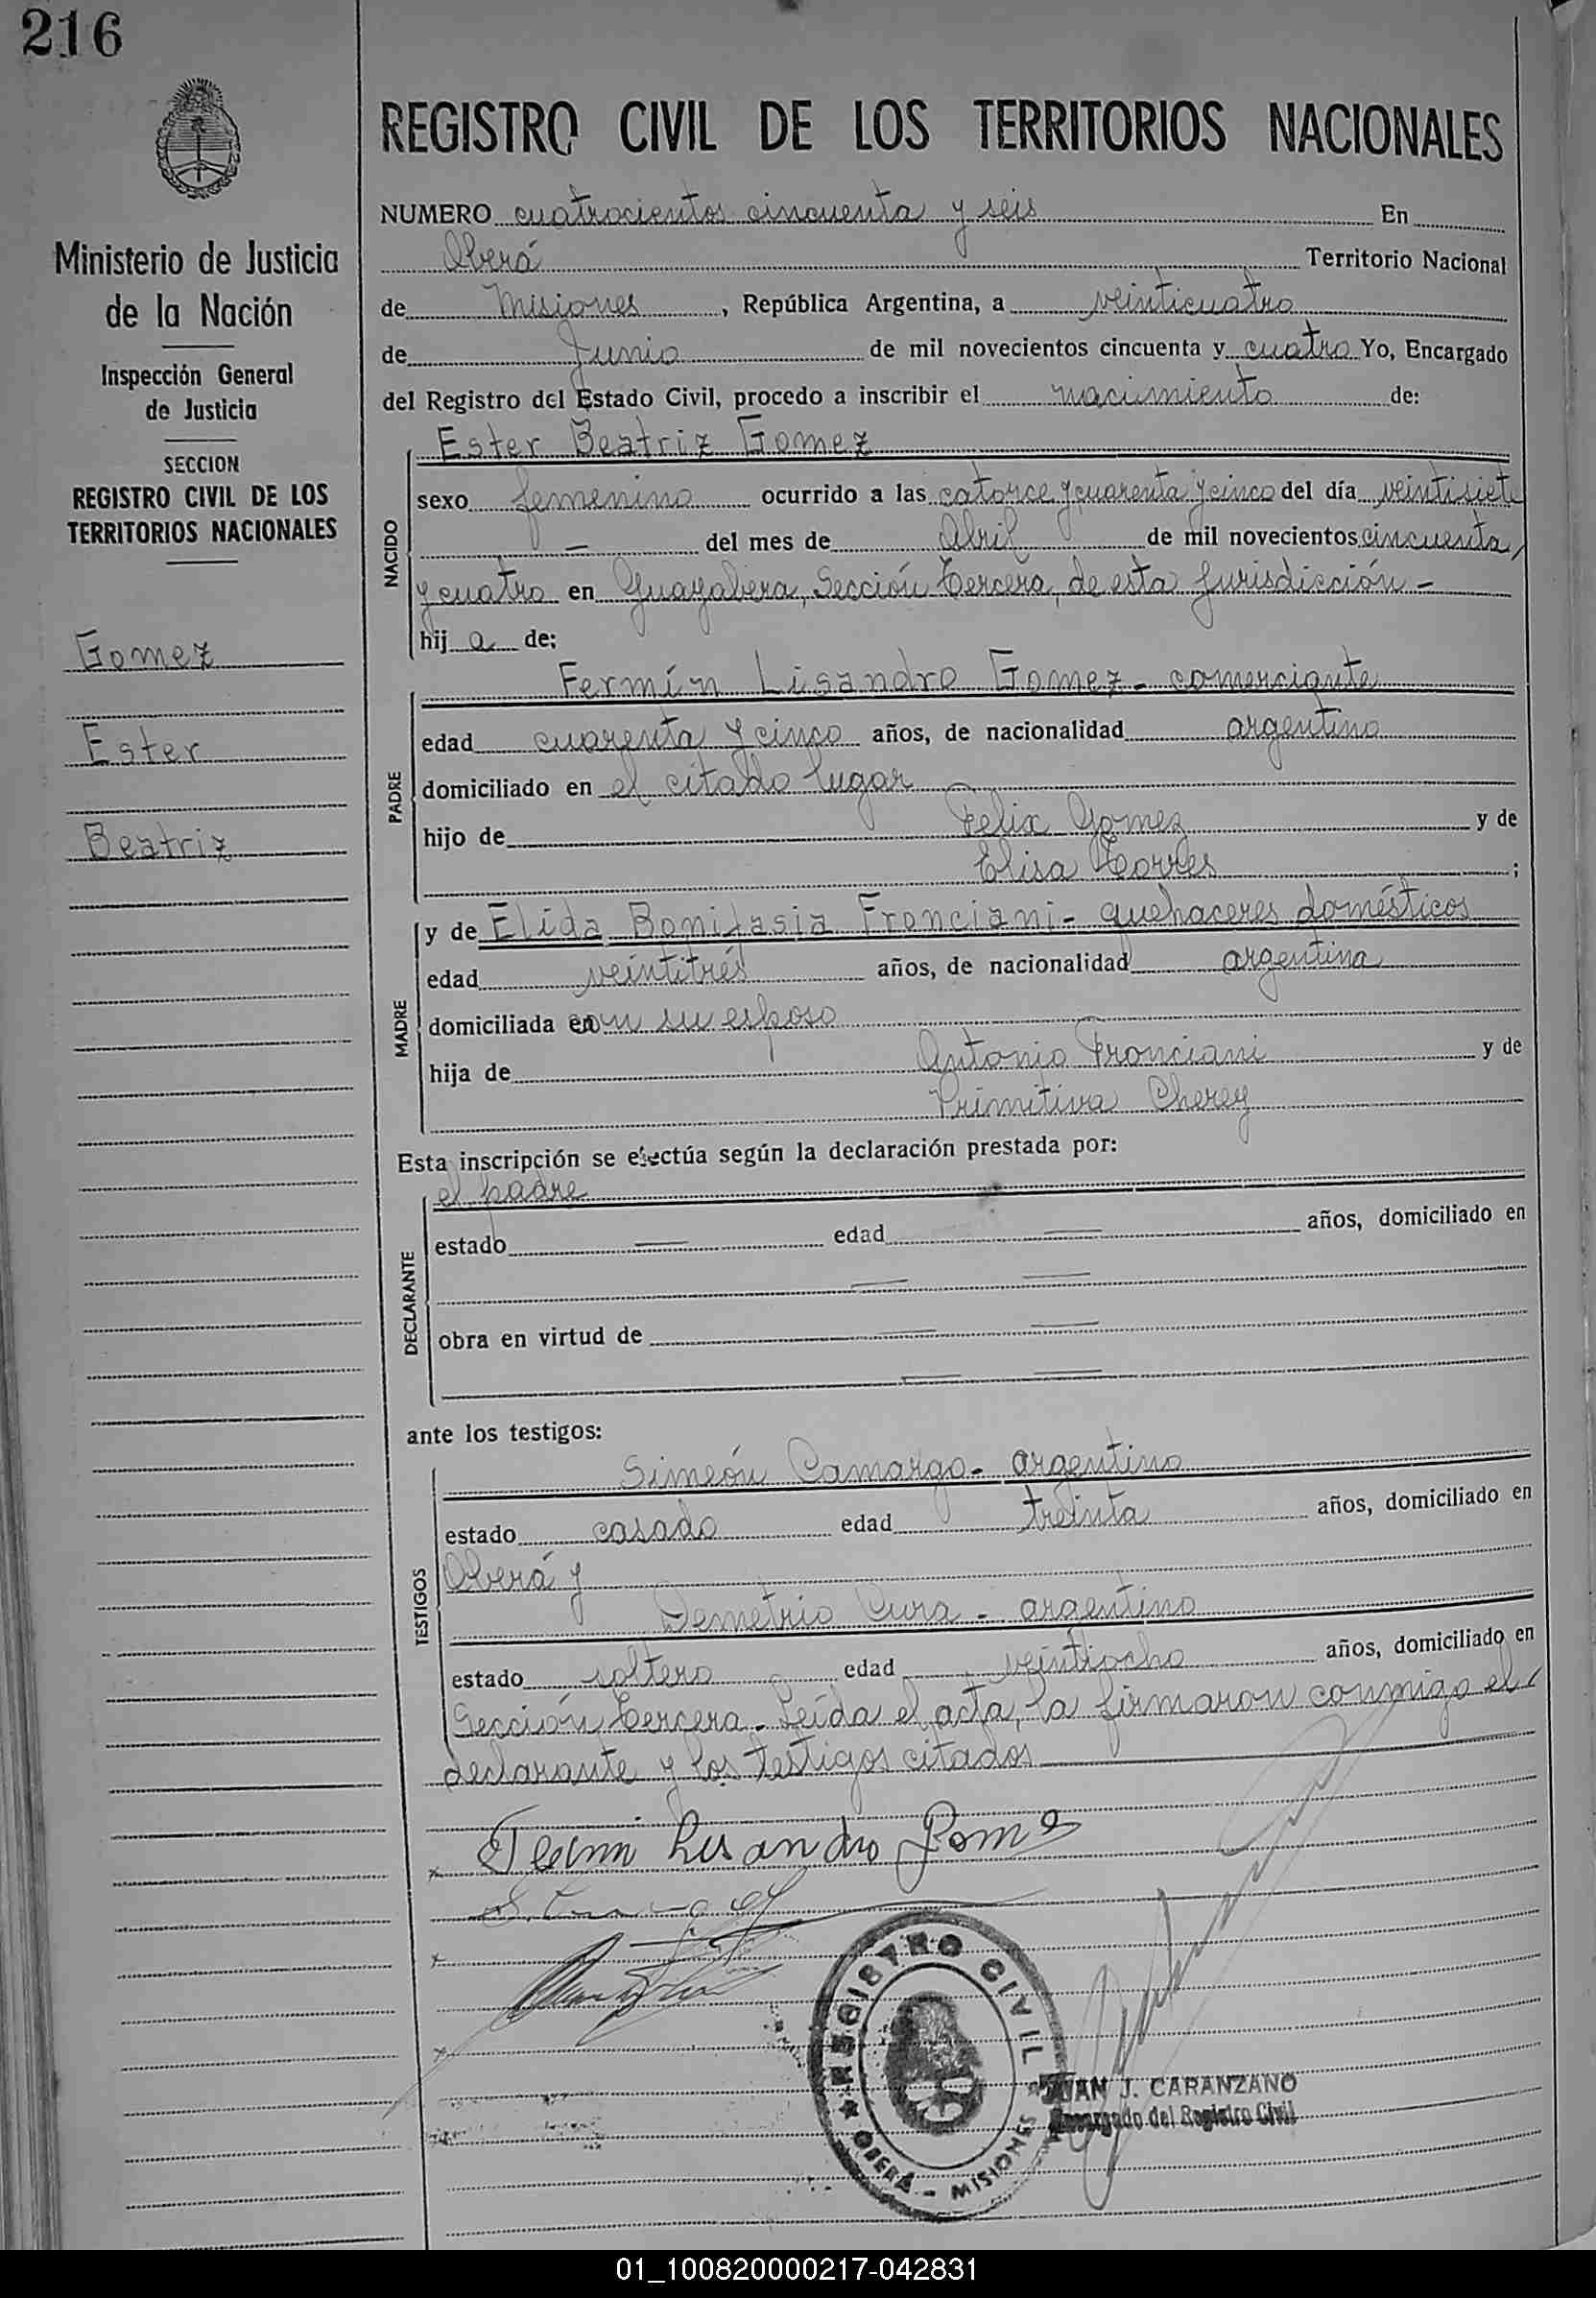 216
Ministerio de Justicia
de la Nación
Inspección General
de Justicia
SECCION
REGISTRO CIVIL DE LOS
TERRITORIOS NACIONALES
Gomez
Ester
Beatriz
REGISTRO CIVIL DE LOS TERRITORIOS NACIONALES
NUMERO cuatrocientos cincuenta y seis En
Oberá Territorio Nacional
de Misiones, República Argentina, a veinticuatro
de Junio de mil novecientos cincuenta y cuatro Yo, Encargado
del Registro del Estado Civil, procedo a inscribir el nacimiento de:
NACIDO
Ester Beatriz Gomez
sexo femenino ocurrido a las catorce y cuarenta y cinco del día veintisiete
— del mes de Abril de mil novecientos cincuenta
y cuatro en Guayabera, Sección Tercera, de esta Jurisdicción -
hij a de:
PADRE
Fermín Lisandro Gomez - comerciante
edad cuarenta y cinco años, de nacionalidad argentino
domiciliado en el citado lugar
hijo de Felix Gomez y de
Elisa Torres ;
MADRE
y de Elida Bonifasia Fronciani - quehaceres domésticos
edad veintitrés años, de nacionalidad argentina
domiciliada en con su esposo
hija de Antonio Fronciani y de
Primitiva Cherey
Esta inscripción se efectúa según la declaración prestada por:
DECLARANTE
el padre
estado — edad — años, domiciliado en
— —
obra en virtud de — —
— —
ante los testigos:
TESTIGOS
Simeón Camargo - argentino
estado casado edad treinta años, domiciliado en
Oberá y
Demetrio Cura - argentino
estado soltero edad veintiocho años, domiciliado en
Sección Tercera. Leída el acta, la firmaron conmigo el
declarante y los testigos citados
Fermin Lisandro Gomez
REGISTRO CIVIL
OBERÁ - MISIONES
JUAN J. CARANZANO
Encargado del Registro Civil
01_100820000217-042831